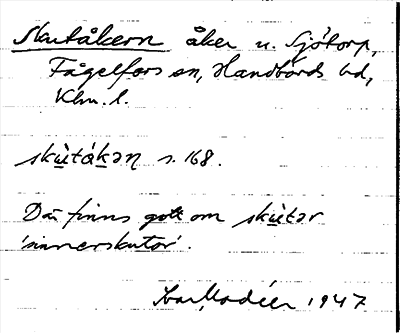 Skutåkern åker u. Sjötorp,
Fågelfors sn, Handbörds hd,
Klm. l.
skùtákən s. 168.
Där finns gott om skùtər
'sinnerskutor'.
Ivar Modéer 1947